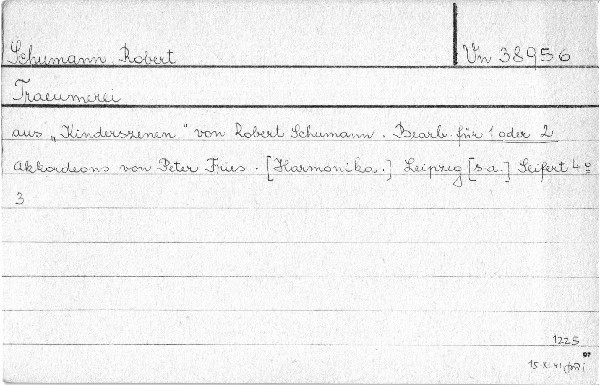 Schumann, Robert
Vn 38956
Traeumerei
aus „Kinderszenen" von Robert Schumann. Bearb. für 1 oder 2
Akkordeons von Peter Fries. [Harmonika.] Leipzeg [s.a.] Seifert 4º
3
1225
07
15.X.41